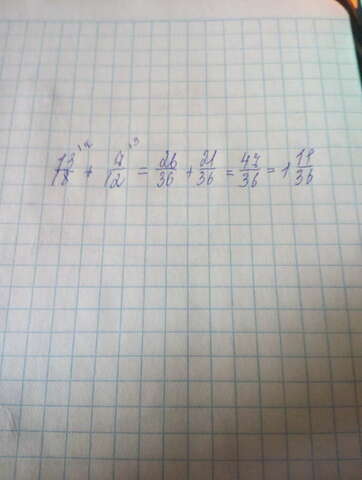 13/18 ^{\2} + 7/12 ^{\3} = 26/36 + 21/36 = 47/36 = 1 11/36